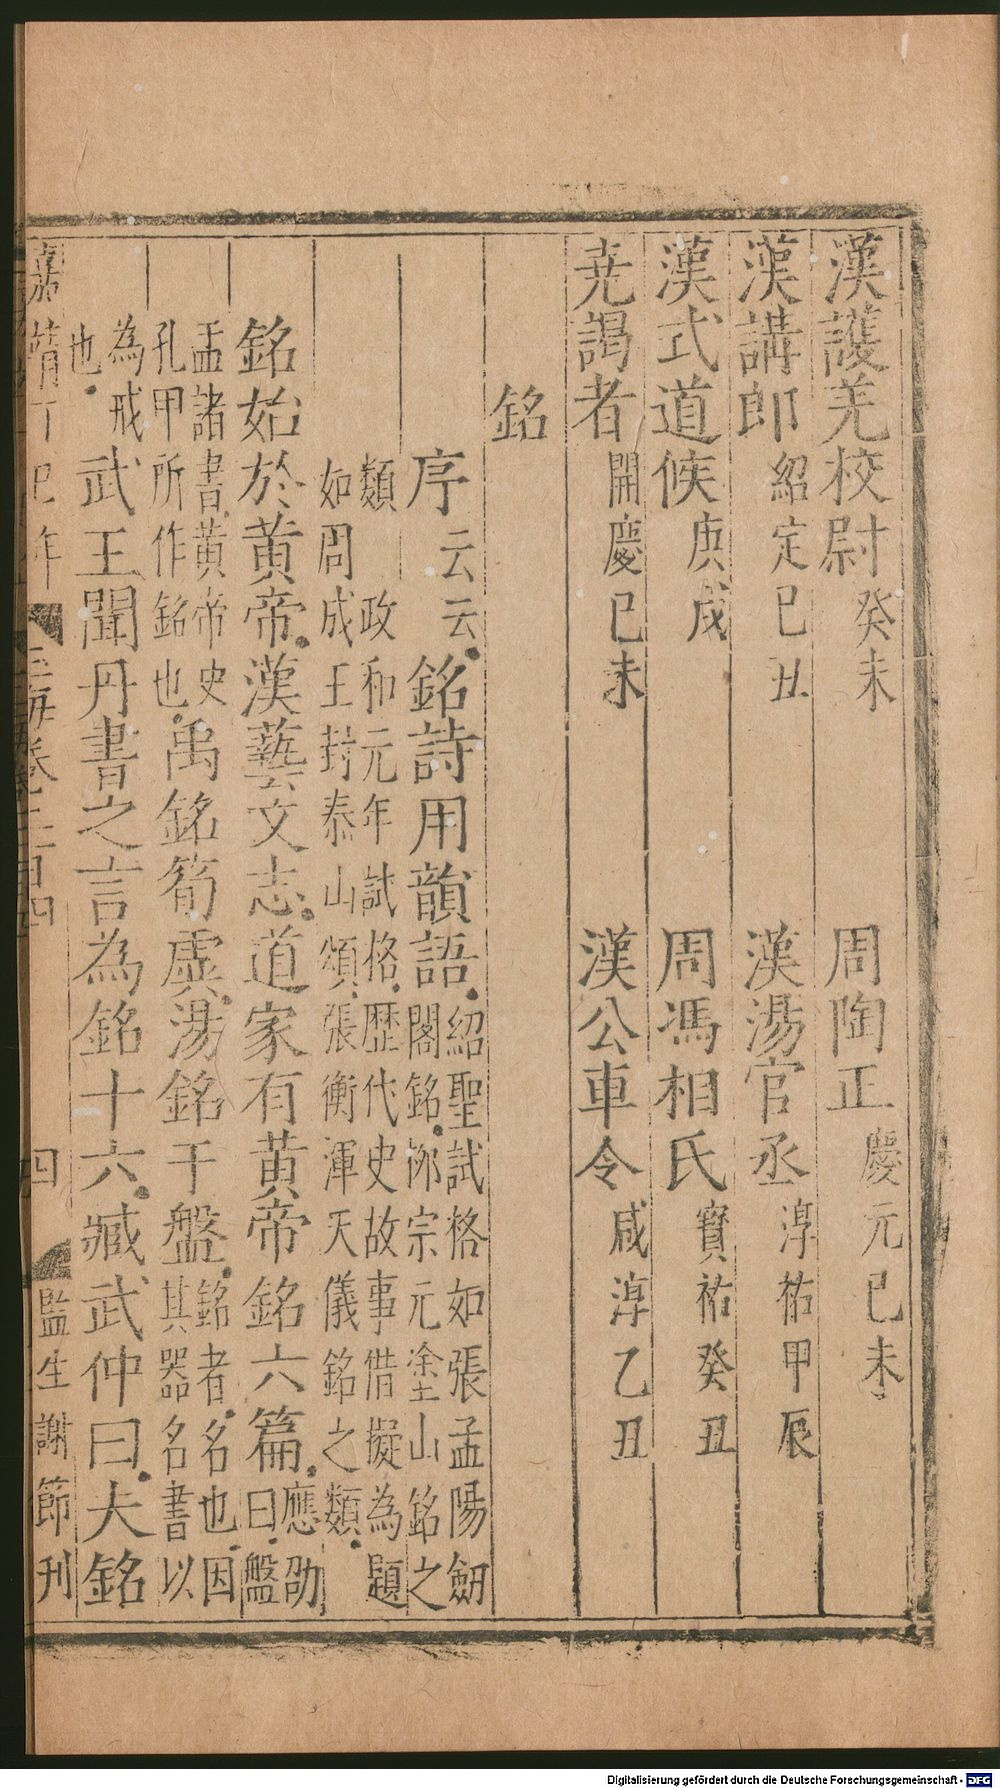 漢護羌校尉癸未　周陶正慶元己未
漢講郎紹定己丑　漢湯官丞淳祐甲辰
漢式道候庚戌　周馮相氏寶祐癸丑
尭謁者開慶己未　漢公車令咸淳乙丑
銘
序云云銘詩用韻語紹聖試格如張孟陽劒
閣銘桞宗元塗山銘之
類政和元年試格歴代史故事借擬為題
如周成王封泰山頌張衡渾天儀銘之類
銘始於黄帝漢藝文志道家有黄帝銘六篇應劭
曰盤
盂諸書黄帝史
孔甲所作銘也禹銘筍虡湯銘于盤銘者名也因
其器名書以
為戒
也武王聞丹書之言為銘十六臧武仲曰夫銘
嘉靖丁巳年
玉海卷二百四
四
監生謝節刊
Digitalisierung gefördert durch die Deutsche Forschungsgemeinschaft - DFG